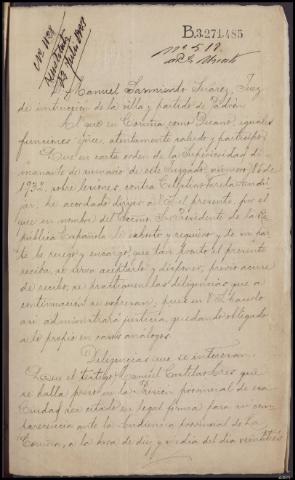 B.3.271.485
nº 518
Manuel Sarmiento Suárez, Juez
de instrucción de la villa y partido de Padrón
Al que en Coruña, como Decano, iguales
funciones ejerce, atentamente saludo y participo:
Que en carta orden de la Superioridad di-
manante de sumario de este Juzgado, número 16 de
1932, sobre lesiones, contra
he acordado dirigir a V.S. el presente, por el
que en nombre del Excmo. Sr. Presidente de la Re-
pública Española le exhorto y requiero y de mi par-
te le ruego y encargo, que tan pronto el presente
reciba, se sirva aceptarlo y disponer, previo acuse
de recibo, se practiquen las diligencias que a
continuación se expresan, pues en V.S. hacerlo
así administrará justicia, quedando obligado
a lo propio en casos análogos.
Diligencias que se interesan.
Que el testigo Manuel que
se halla preso en la Prisión provincial de esa
Ciudad sea citado en legal forma para su com-
parecencia ante la Audiencia provincial de La
Coruña, a la hora de diez y media del día veintiséis